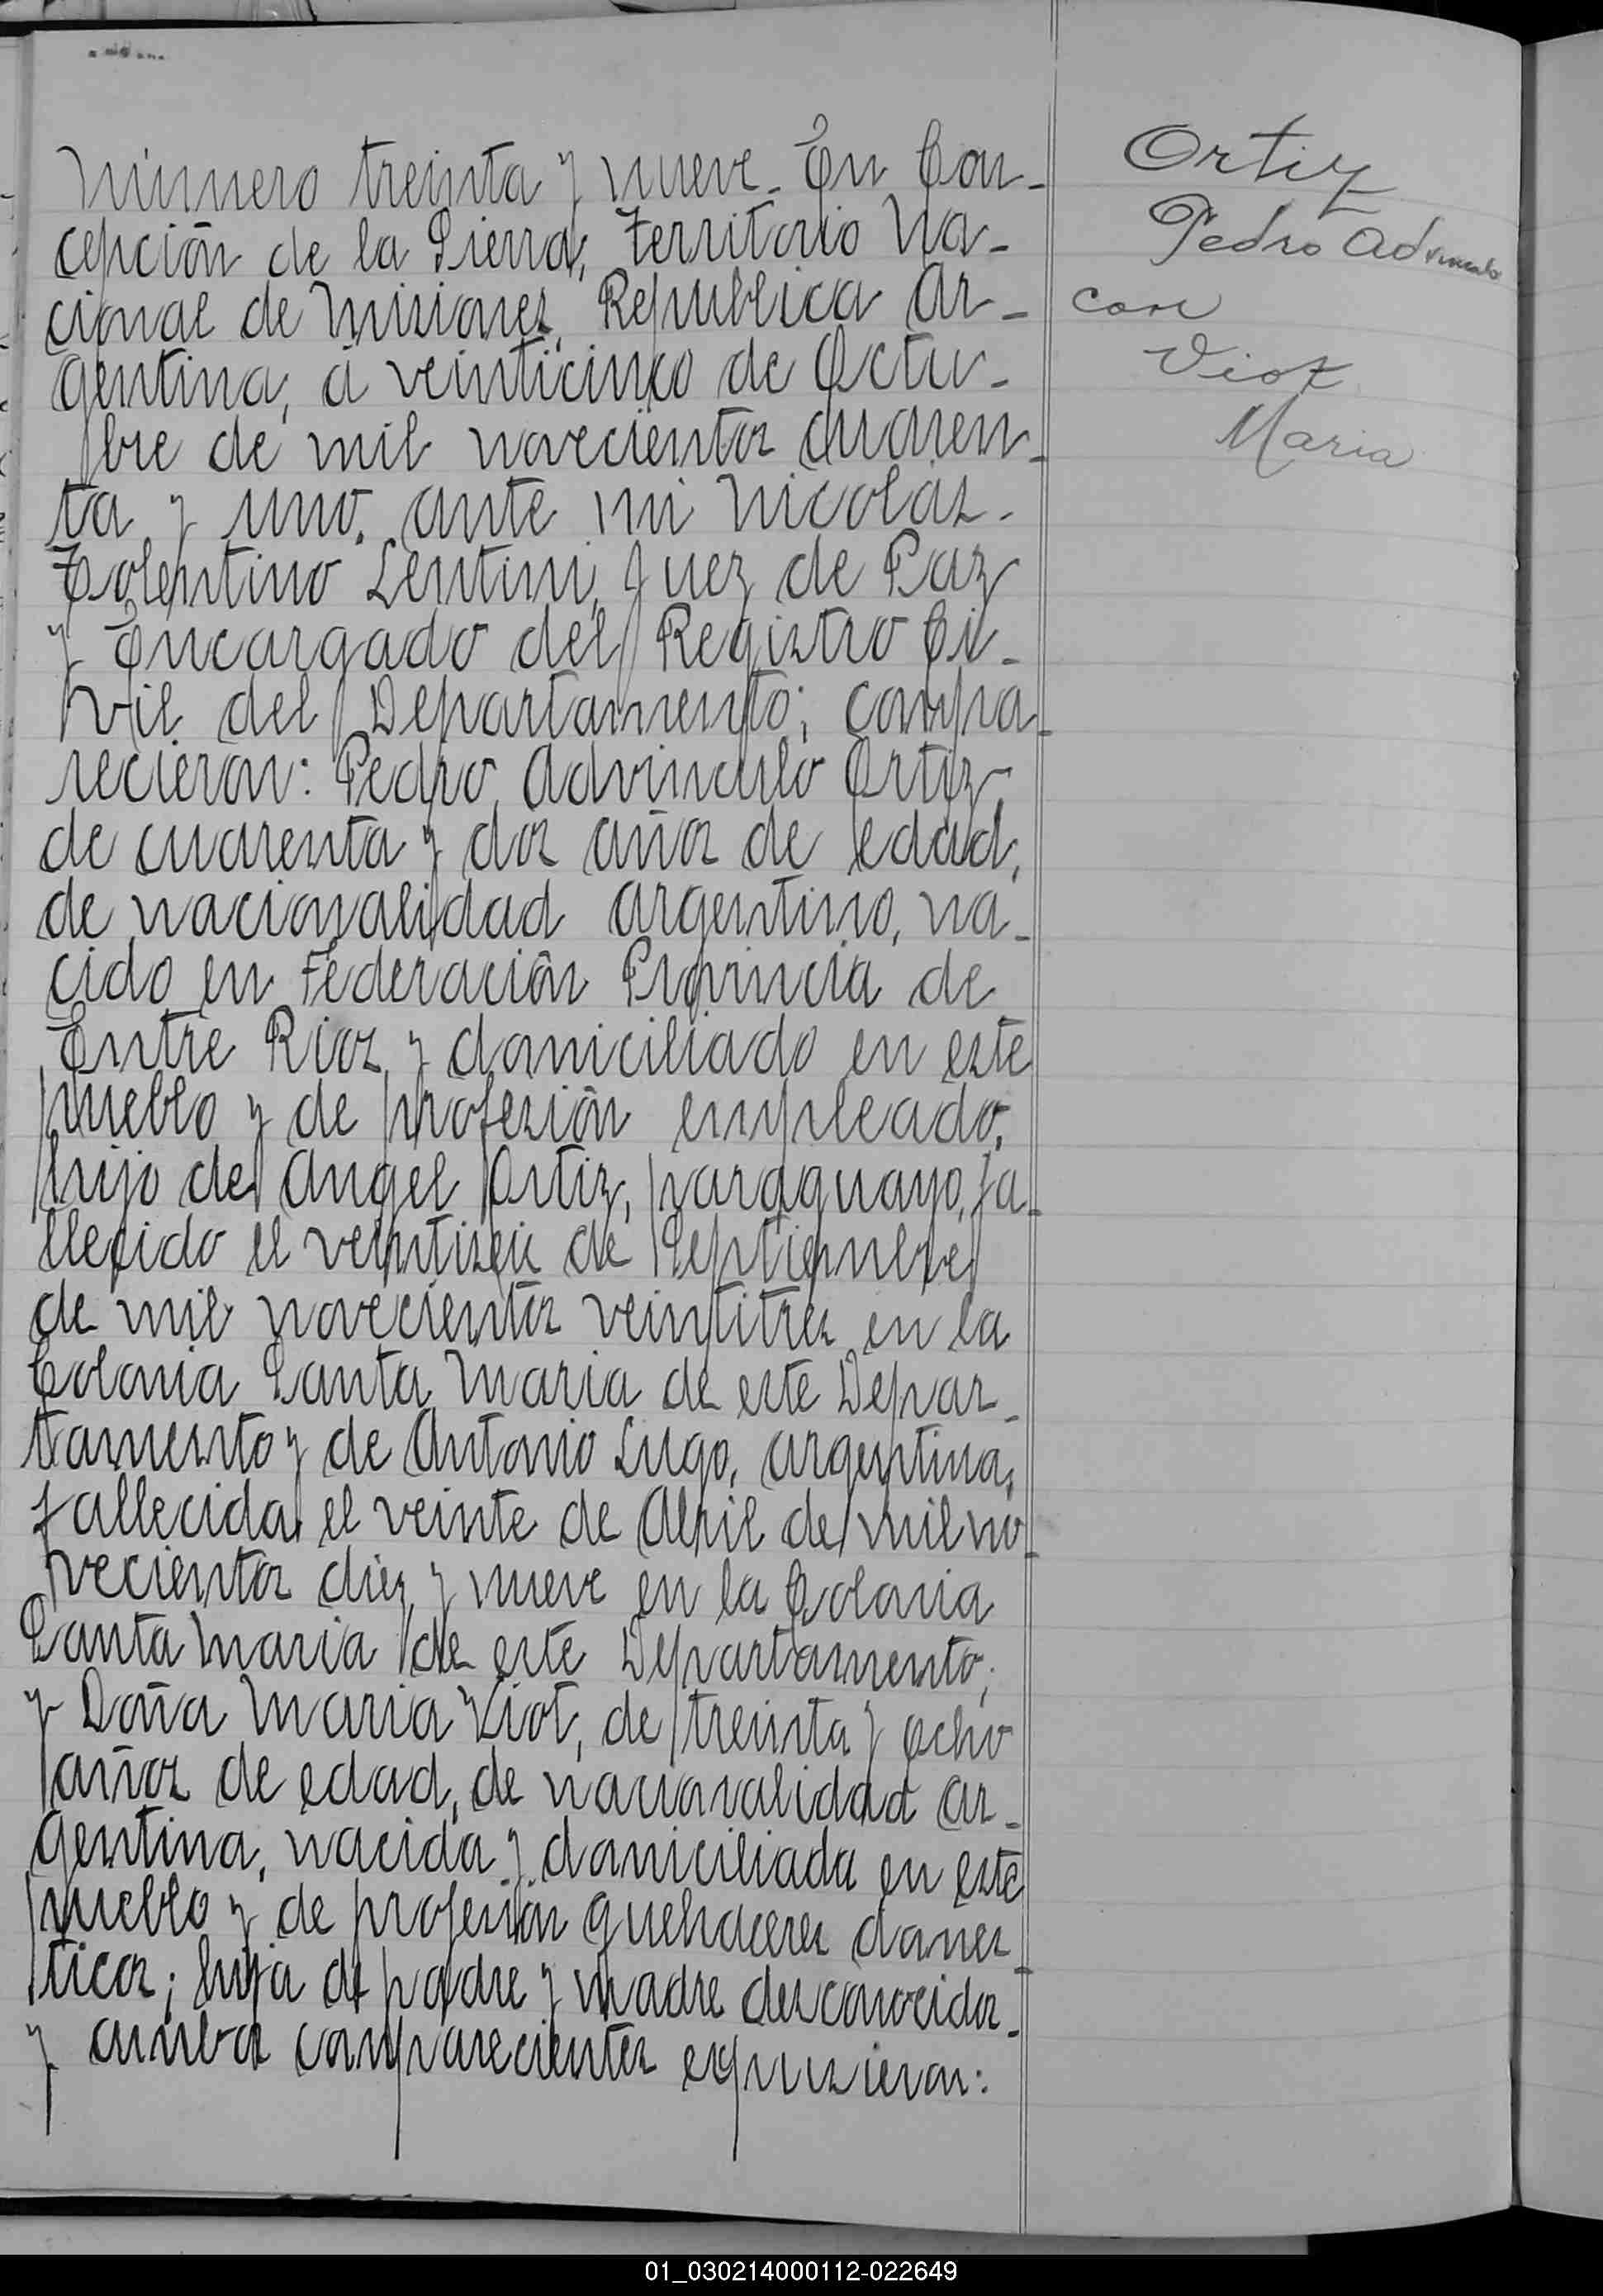 Número treinta y nueve. En Con-
cepción de la Sierra, Territorio Na-
cional de Misiones, Republica Ar-
gentina, á veinticinco de Octu-
bre de mil novecientos cuaren-
ta y uno, ante mi Nicolás
Tolentino Lentini, Juez de Paz
y Encargado del Registro Ci-
vil del Departamento; compa-
recieron: Pedro Advinculo Ortiz,
de cuarenta y dos años de edad,
de nacionalidad argentino, na-
cido en Federación Provincia de
Entre Rios y domiciliado en este
pueblo y de profesión empleado,
hijo de Angel Ortiz, paraguayo, fa-
llecido el veintiseis de Septiembre
de mil novecientos veintitres en la
Colonia Santa Maria de este Depar-
tamento y de Antonio Lugo, argentina,
fallecida el veinte de Abril de mil no-
vecientos diez y nueve en la Colonia
Santa Maria de este Departamento;
y Doña Maria Viot, de treinta y ocho
años de edad, de nacionalidad ar-
gentina, nacida y domiciliada en este
pueblo y de profesión quehaceres domes-
ticos; hija de padre y madre desconocidos-
y ambos comparecientes expusieron:
Ortiz
Pedro Advinculo
con
Viot
Maria
01_030214000112-022649